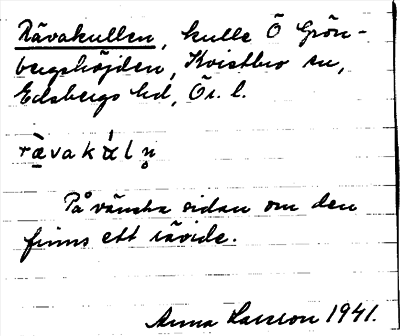 Rävakullen, kulle Ö Grön-
bergshöjden, Kvistbro sn,
Edsbergs hd, Ör. l.
ràvakál
På vänstra sidan om den
finns ett rävide.
Anna Larsson 1941.